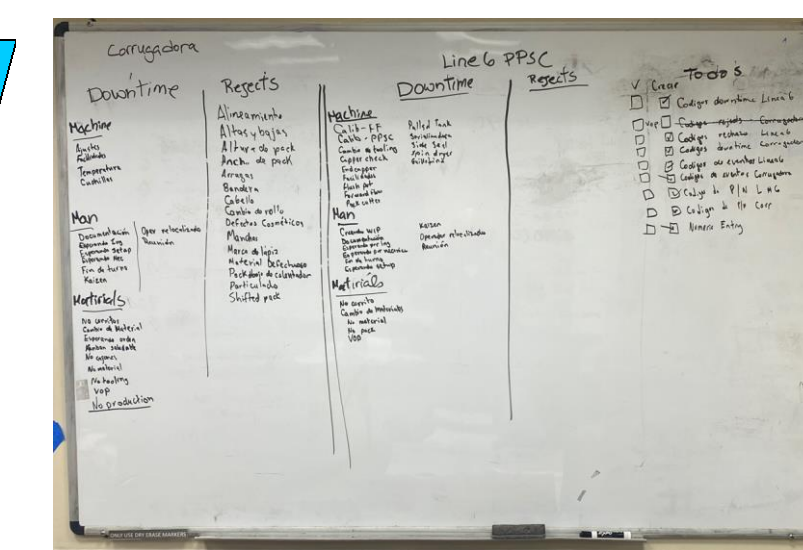 Corrugadora
Downtime
Rejects
Machine
Ajustes
Facilidades
Temperatura
Cuchillas
Man
Documentación
Esperando Ing
Esperando setup
Esperando Mec
Fin de turno
Kaizen
Oper relocalizado
Reunión
Matirials
No carritos
Cambio de Material
Esperando orden
Kanban saludable
No cajones
No material
No tooling
VOP
No production
Alineamiento
Altas y bajas
Altura de pack
Ancho de pack
Arrugas
Bandera
Cabello
Cambio de rollo
Defectos Cosméticos
Manchas
Marca de lápiz
Material Defectuoso
Pack debajo de calentador
Particulado
Shifted pack
Line 6 PPSC
Downtime
Rejects
Machine
Calib-FF
Calib-PPSC
Cambio de tooling
Copper check
Endcapper
Facilidades
Flush pot
Forward flow
Pack cutter
Pulled Tank
Serializadora
Side Seal
Spin dryer
Man
Creando WIP
Documentación
Esperando por Ing
Esperando por mecánico
Fin de turno
Esperando setup
Kaizen
Operador relocalizado
Reunión
Matirials
No carrito
Cambio de Materiales
No material
No pack
VOP
To do's
V Crear
Codigos downtime Linea 6
VOP Codigos rejects - Corrugadora
Codigos rechazo Linea 6
Codigos downtime Corrugadora
Codigos de eventos Linea 6
Codigos de eventos Corrugadora
Codigo de P/N L#6
Codigo de P/N Corr
Numeric Entry
ONLY USE DRY ERASE MARKERS